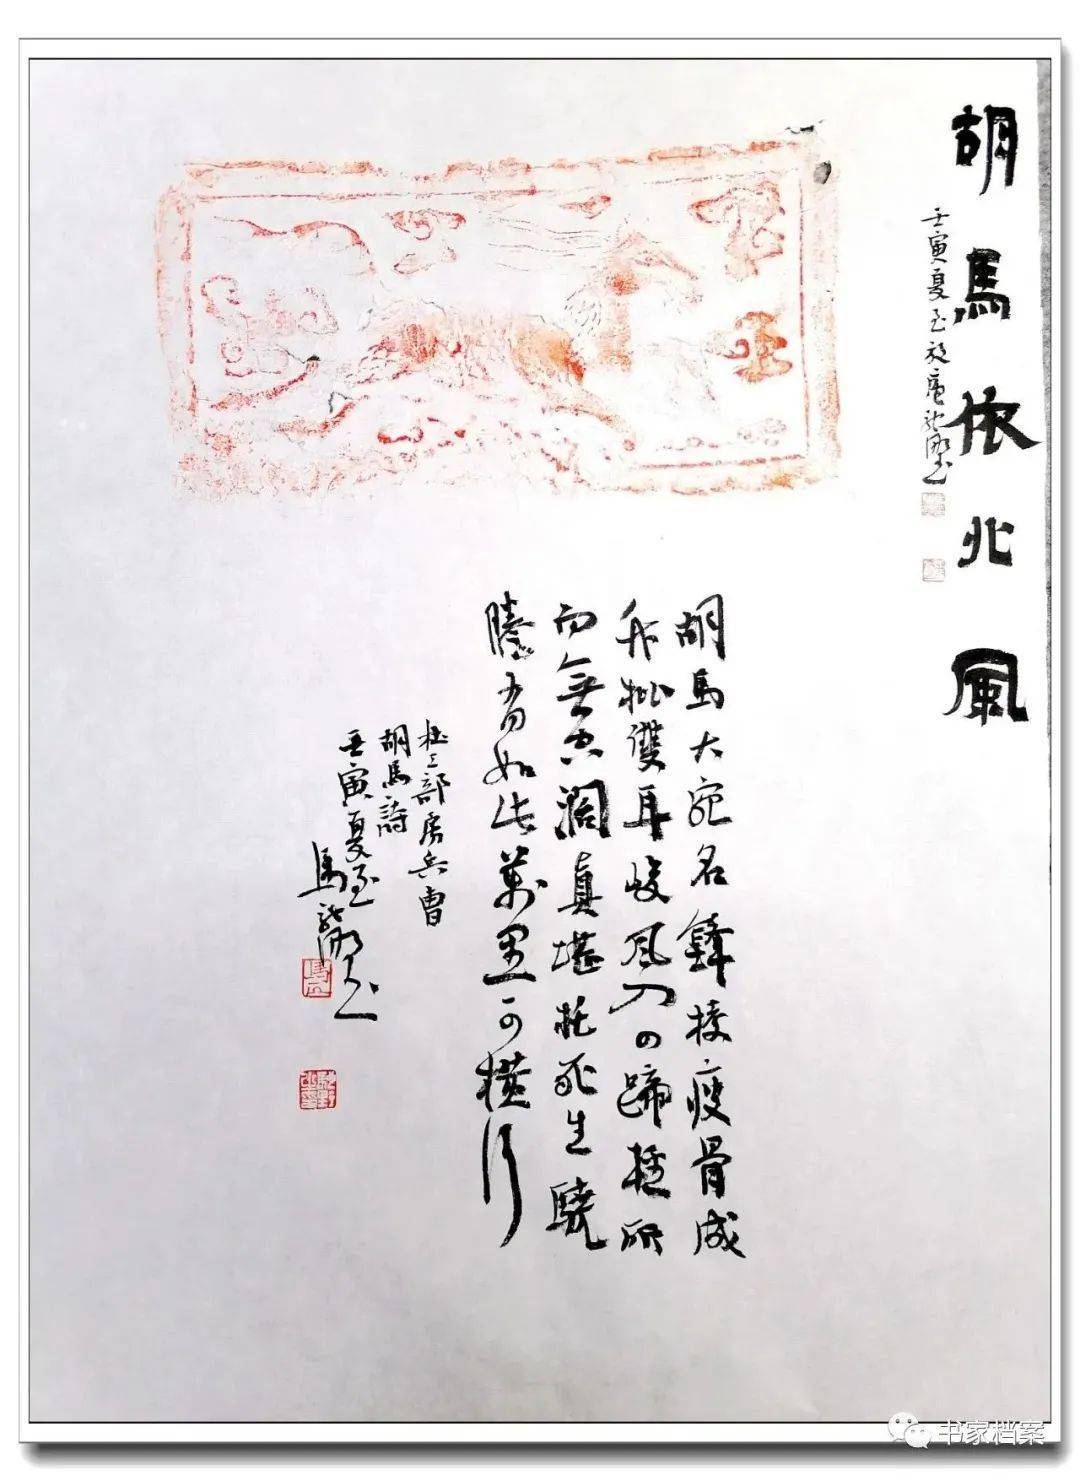 胡馬依北風
壬寅夏至
胡馬大宛名鋒棱瘦骨成
竹批雙耳峻風入四蹄輕所
向無空闊真堪托死生驍
騰有如此萬里可橫行
杜工部房兵曹
胡馬詩
壬寅夏至
馬
书家档案